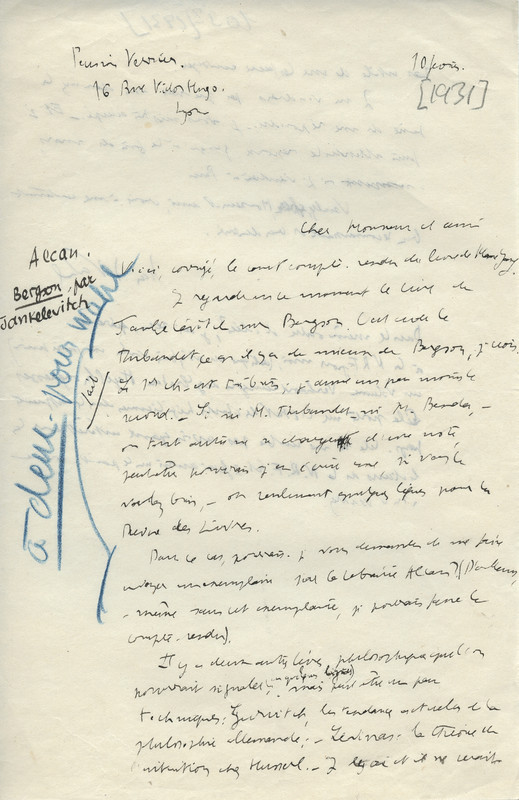 Pension Verrier.
16 Rue Victor Hugo.
Lyon
10 juin.
[1931]
Cher Monsieur et ami
Alcan.
Bergson, par
Jankelevitch
à demander pour Wahl
fait
Voici corrigé, le court compte-rendu du livre de
Je regarde en ce moment le livre de
Jankélévitch sur Bergson. C'est avec le
Thibaudet ce qu'il y a de mieux sur Bergson, je crois.
Le 1er ch. est très bien; j'aime un peu moins le
second. – Si ni M. Thibaudet ni M. Benda, –
ou tout autre ne se charge d'une note
peut-être pourrais-j'en écrire une si vous le
voulez bien, – ou seulement quelques lignes pour la
Revue des Livres.
Dans ce cas, pourrais-je vous demander de me faire
envoyer un exemplaire par la librairie Alcan? (D'ailleurs,
– même sans cet exemplaire, je pourrais faire le
compte-rendu).
Il y a deux autres livres philosophiques qu'on
pourrait signaler (en quelques lignes), mais peut-être un peu
techniques: Gurvitch, les tendances actuelles de la
philosophie allemande; – Levinas: la Théorie de
l'intuition chez Husserl. – J et il me serait